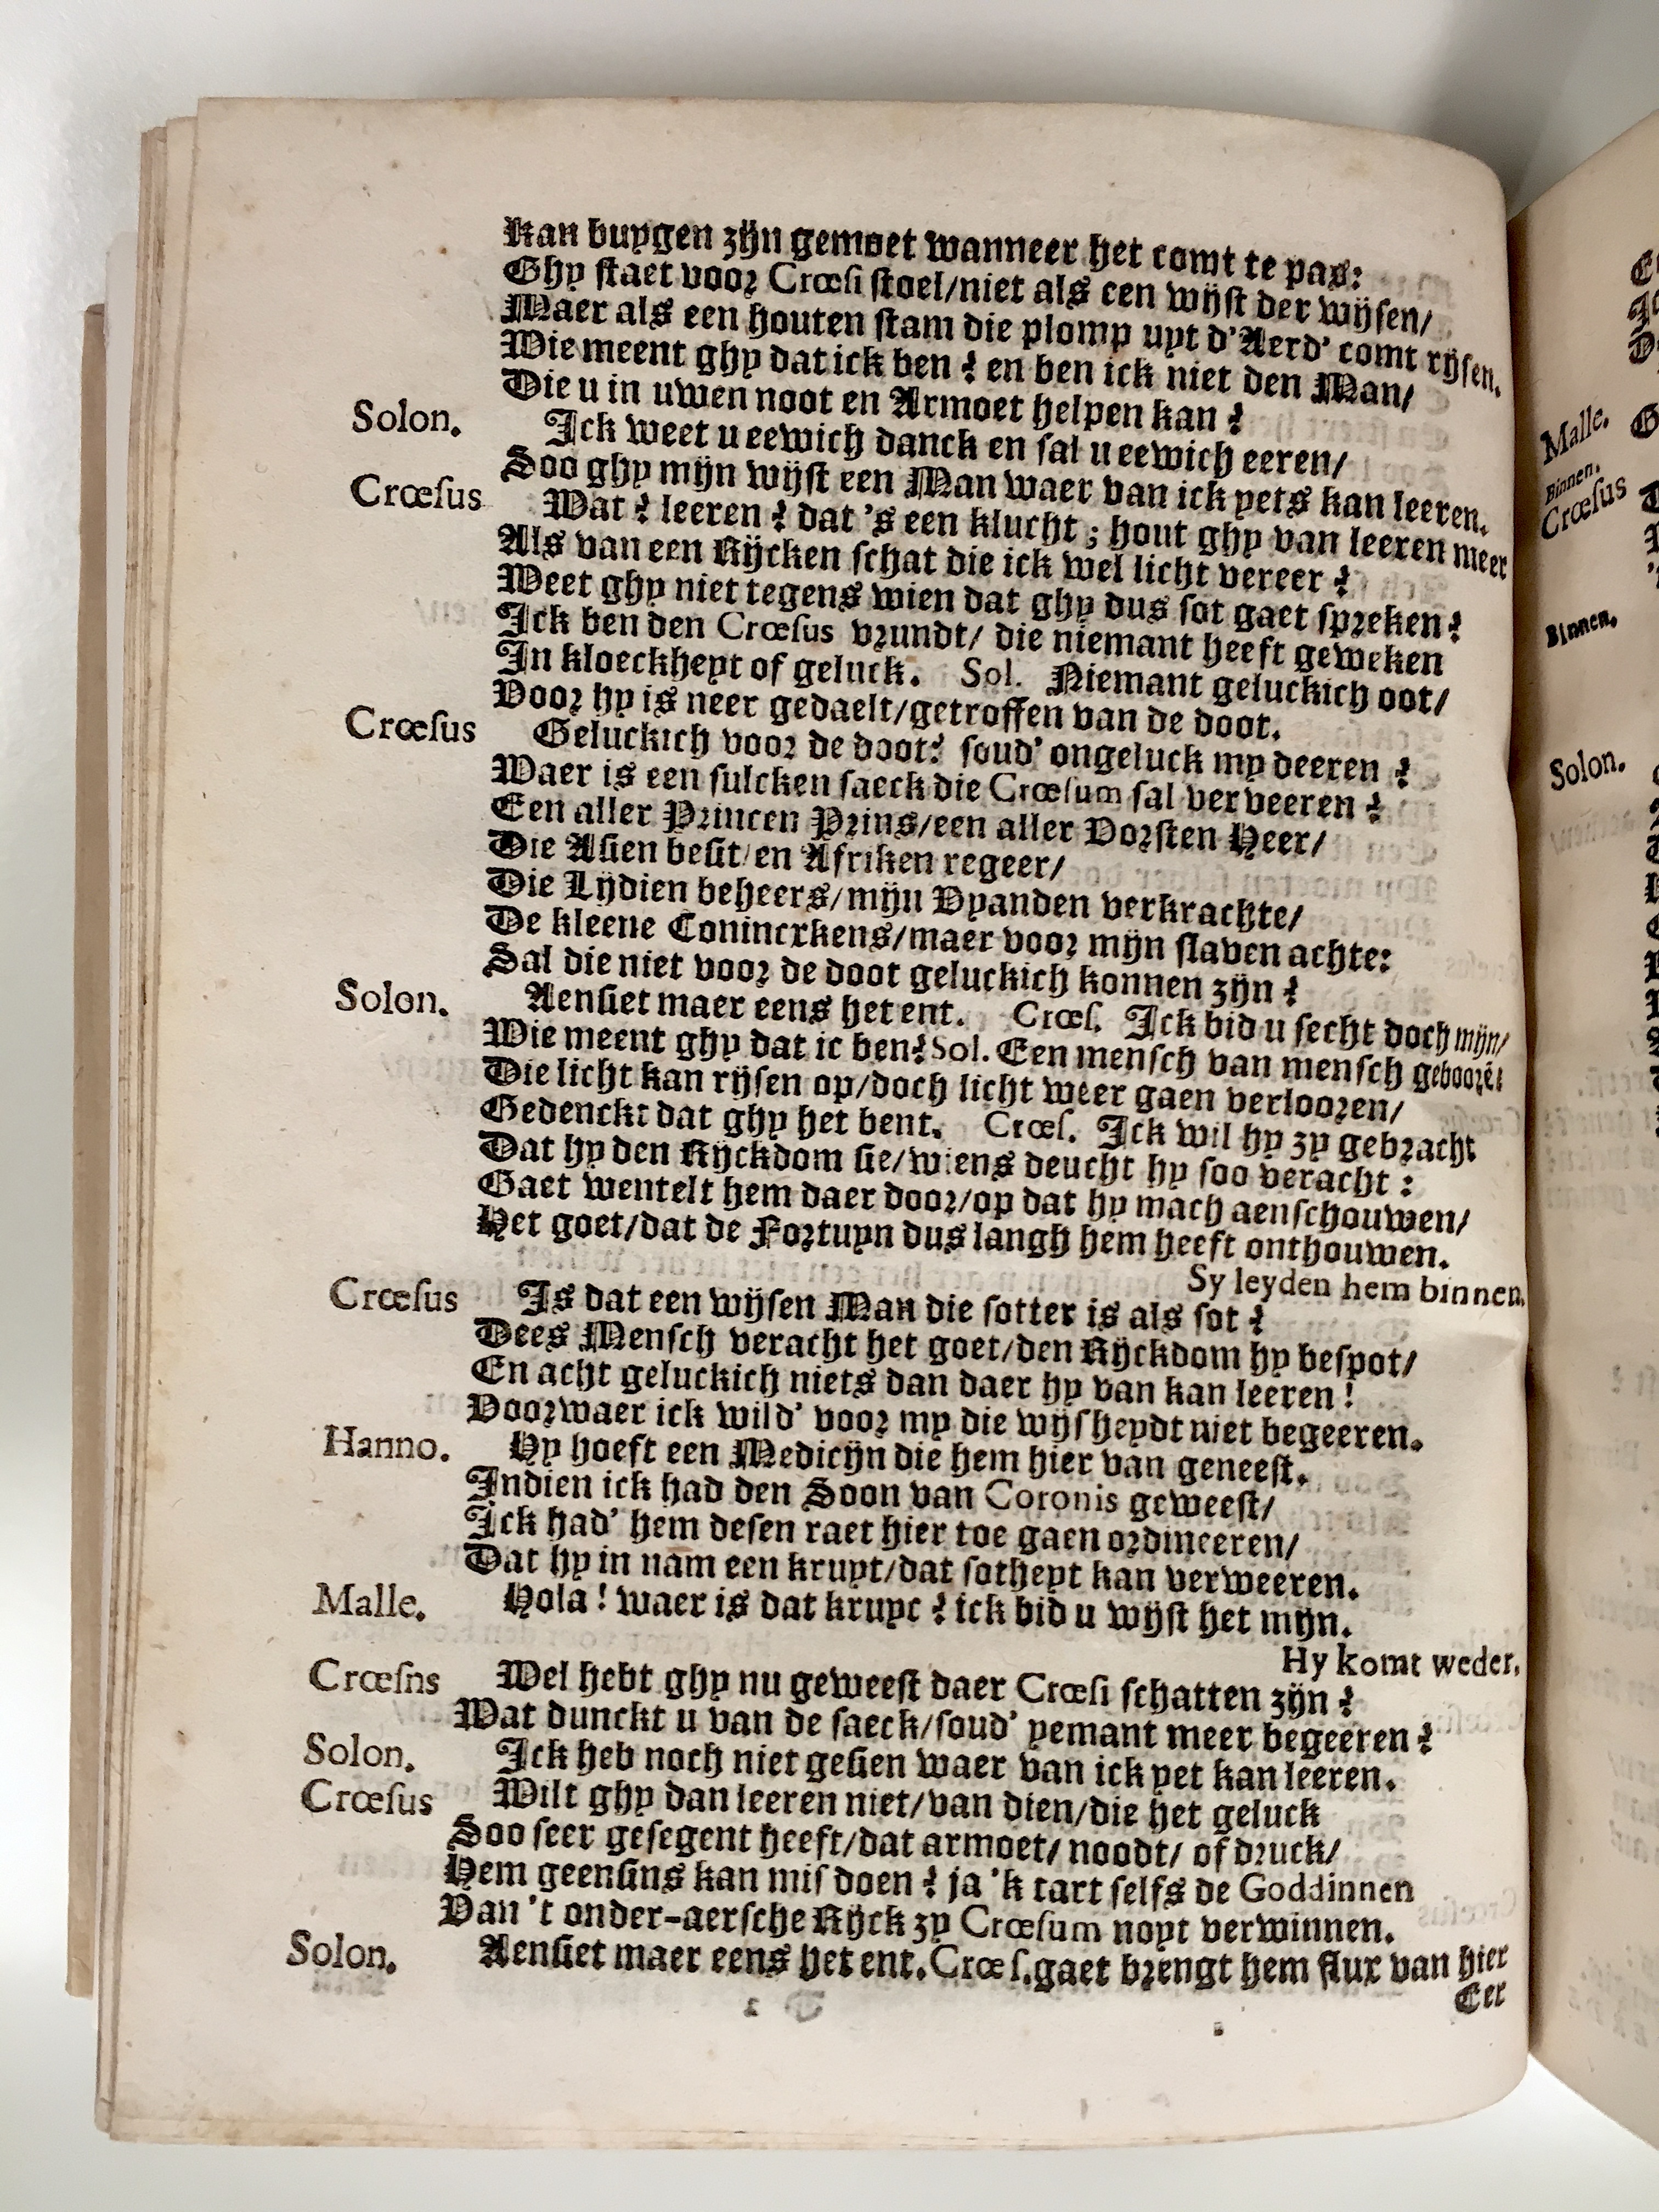 Kan buygen zijn gemoet wanneer het comt te pas:
Ghy staet voor Crœsi stoel/niet als een wijst der wijsen/
Maer als een houten stam die plomp uyt d'Aerd' comt rijsen.
Wie meent ghy dat ick ben? en ben ick niet den Man/
Die u in uwen noot en Armoet helpen kan?
Solon. Ick weet u eewich danck en sal u eewich eeren/
Soo ghy mijn wijst een Man waer van ick yets kan leeren.
Crœsus Wat? leeren? dat 's een klucht; hout ghy van leeren meer
Als van een Rijcken schat die ick wel licht vereer?
Weet ghy niet tegens wien dat ghy dus sot gaet spreken?
Ick ben den Crœsus vrundt/ die niemant heeft geweken
In kloeckheyt of geluck. Sol. Niemant geluckich oot/
Voor hy is neer gedaelt/getroffen van de doot.
Crœsus Geluckich voor de doot? soud' ongeluck my deeren?
Waer is een sulcken saeck die Crœsum sal verveeren?
Een aller Princen Prins/een aller Vorsten Heer/
Die Asien besit/en Afriken regeer/
Die Lijdien beheers/mijn Vyanden verkrachte/
De kleene Coninckkens/maer voor mijn slaven achte:
Sal die niet voor de doot geluckich konnen zijn?
Solon. Aensiet maer eens het ent. Crœs. Ick bid u secht doch mijn/
Wie meent ghy dat ic ben? Sol. Een mensch van mensch geboorē:
Die licht kan rijsen op/doch licht weer gaen verlooren/
Gedenckt dat ghy het bent. Crœs. Ick wil hy zy gebracht
Dat hy den Rijckdom sie/wiens deucht hy soo veracht:
Gaet wentelt hem daer door/op dat hy mach aenschouwen/
Het goet/dat de Fortuyn dus langh hem heeft onthouwen.
Sy leyden hem binnen.
Crœsus Is dat een wijsen Man die sotter is als sot?
Dees Mensch veracht het goet/den Rijckdom hy bespot/
En acht geluckich niets dan daer hy van kan leeren!
Voorwaer ick wild' voor my die wijsheydt niet begeeren.
Hanno. Hy hoeft een Medicijn die hem hier van geneest.
Indien ick had den Soon van Coronis geweest/
Ick had' hem desen raet hier toe gaen ordineeren/
Dat hy in nam een kruyt/dat sotheyt kan verweeren.
Malle. Hola! waer is dat kruyt? ick bid u wijst het mijn.
Hy komt weder.
Crœsns Wel hebt ghy nu geweest daer Crœsi schatten zijn?
Wat dunckt u van de saeck/soud' yemant meer begeeren?
Solon. Ick heb noch niet gesien waer van ick yet kan leeren.
Crœsus Wilt ghy dan leeren niet/van dien/die het geluck
Soo seer gesegent heeft/dat armoet/ noodt/ of druck/
Hem geensins kan mis doen? ja 'k tart selfs de Goddinnen
Van 't onder-aersche Rijck zy Crœsum noyt verwinnen.
Solon. Aensiet maer eens het ent. Crœs. gaet brengt hem flux van hier
Eer
Malle.
Binnen.
Crœsus
Binnen.
Solon.